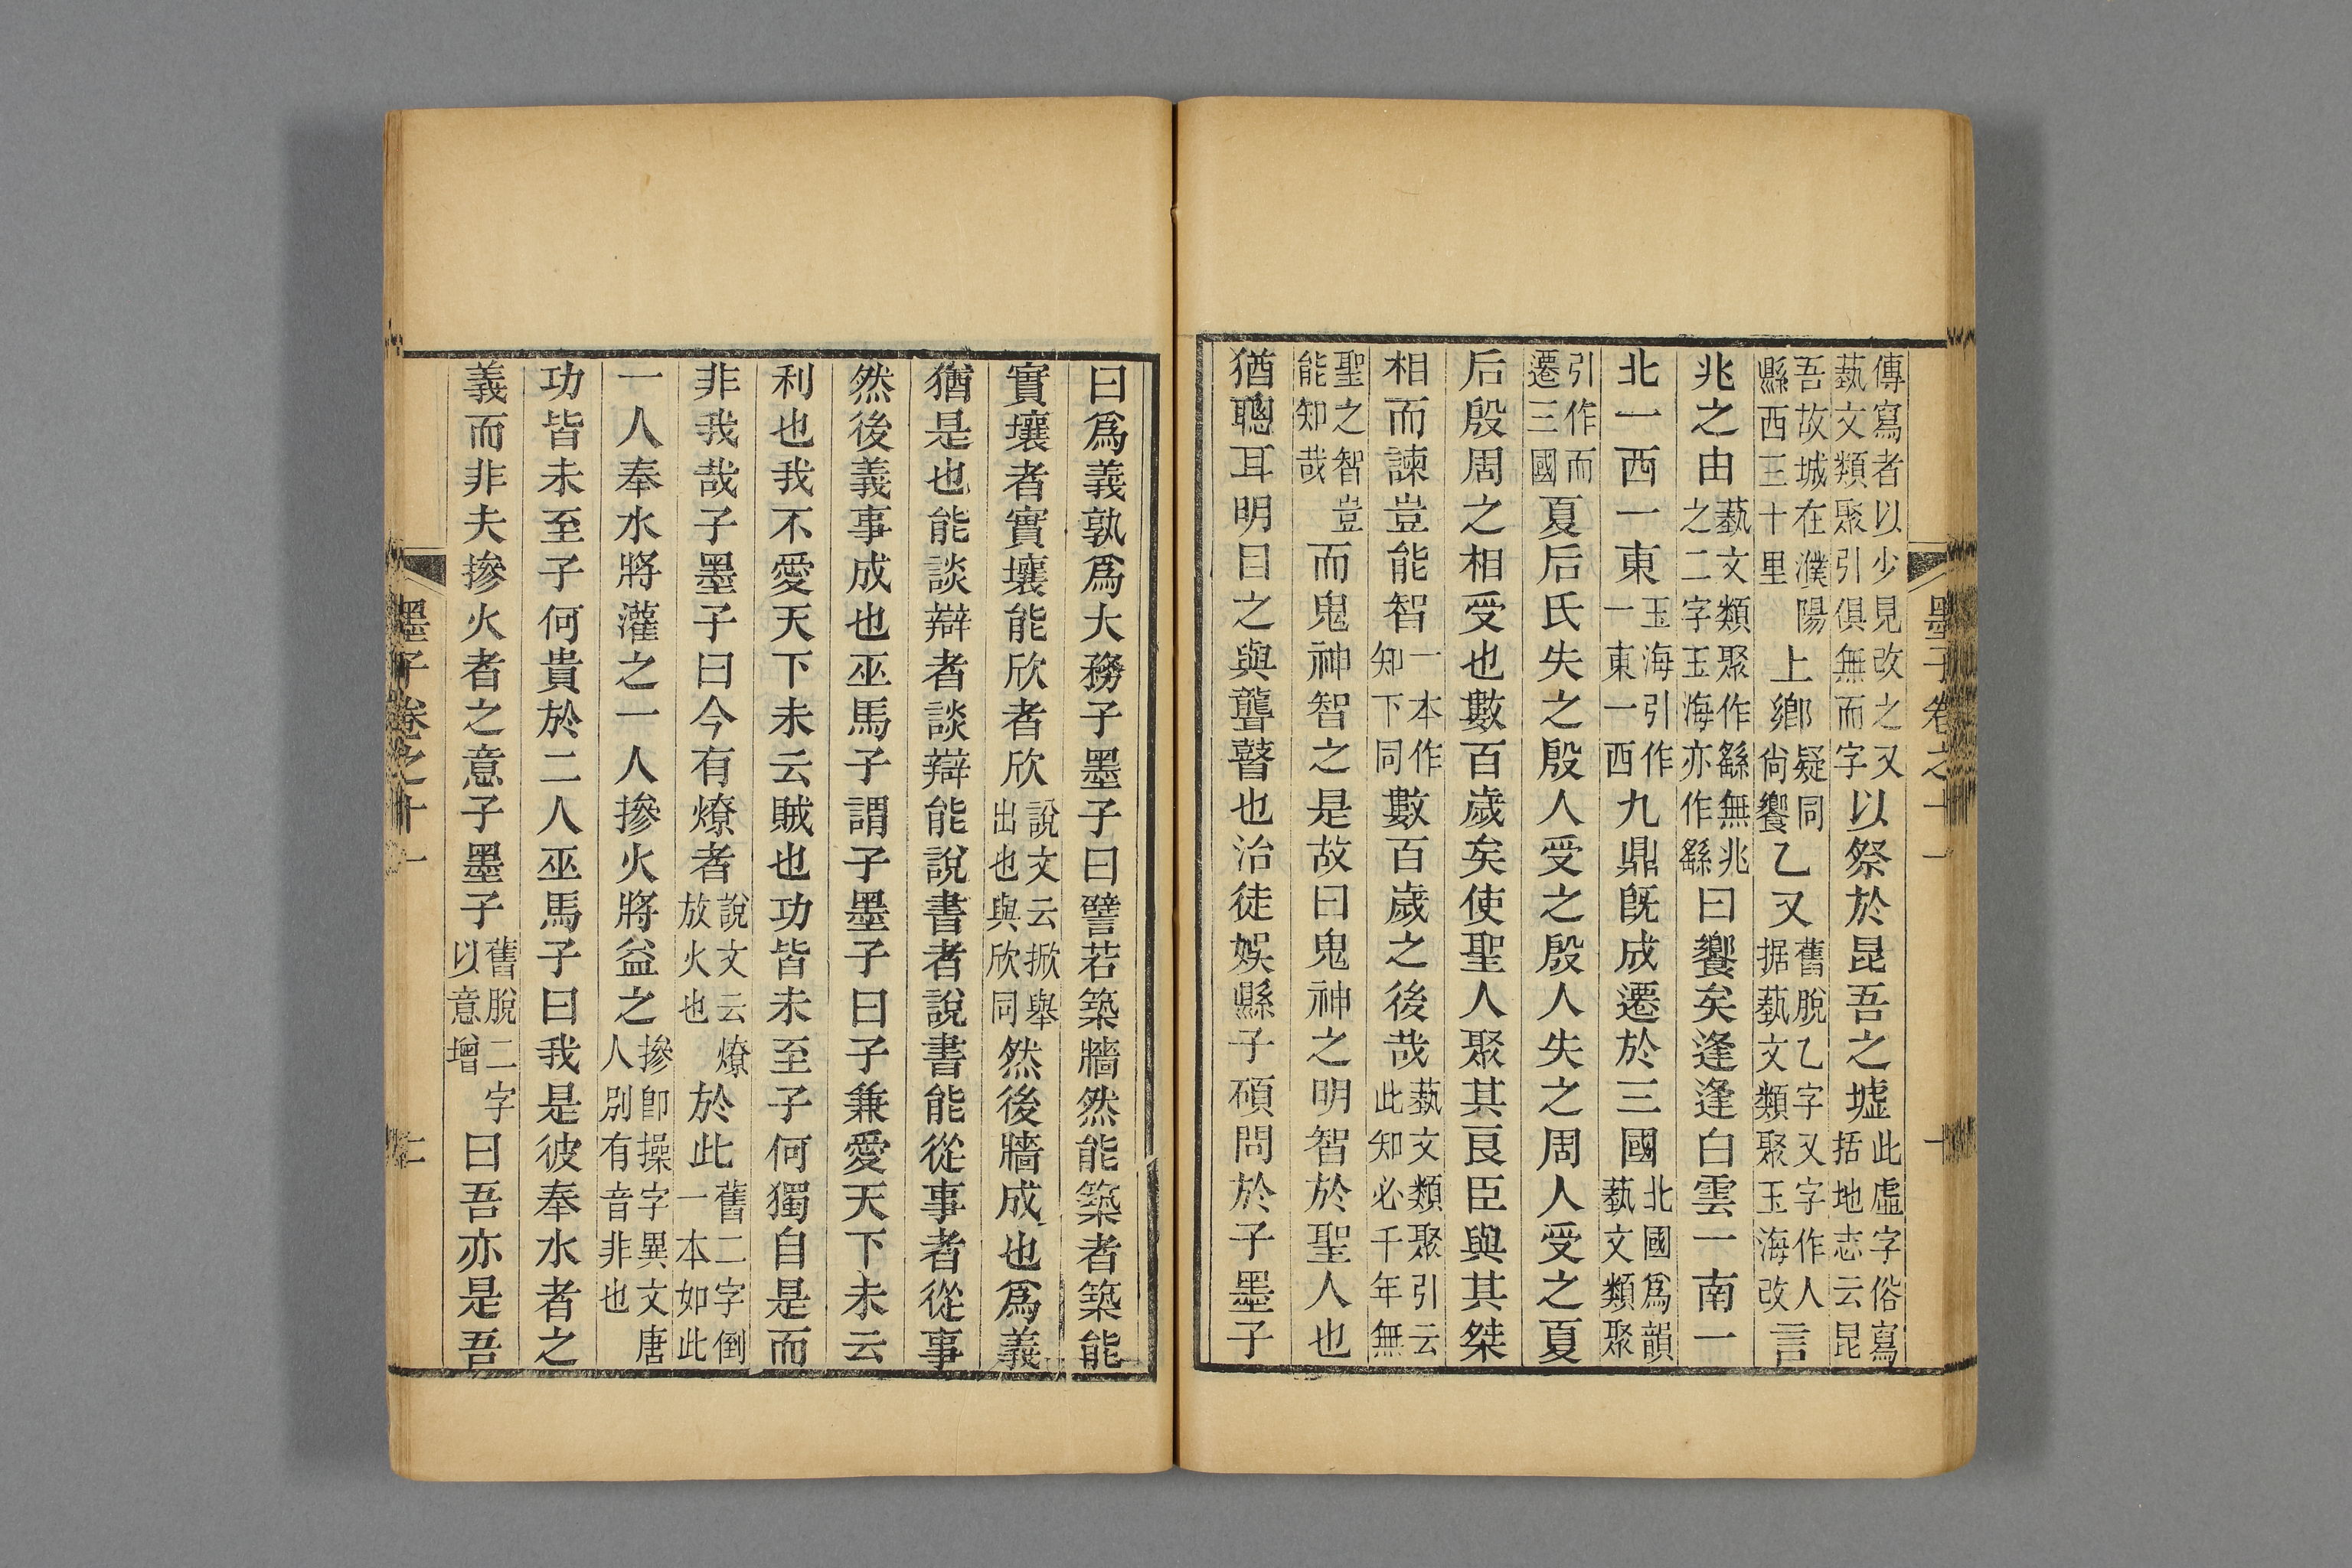 傳寫者以少見改之又藝文類聚引俱無而字以祭於昆吾之墟此虛字俗寫括地志云昆
吾故城在濮陽縣西三十里上鄉疑同尙饗乙又舊脫乙字又字作人据藝文類聚玉海改言
兆之由藝文類聚作繇無兆之二字玉海亦作繇曰饗矣逢逢白雲一南一
北一西一東玉海引作一東一西九鼎旣成遷於三國北國爲韻藝文類聚
引作而遷三國夏后氏失之殷人受之殷人失之周人受之夏
后殷周之相受也數百歲矣使聖人聚其良臣與其桀
相而諫豈能智一本作知下同數百歲之後哉藝文類聚引云此知必千年無
聖之智豈能知哉而鬼神智之是故曰鬼神之明智於聖人也
猶聰耳明目之與聾瞽也治徒娛縣子碩問於子墨子
墨子卷之十一
曰爲義孰爲大務子墨子曰譬若築牆然能築者築能
實壤者實壤能欣者欣說文云掀舉出也與欣同然後牆成也爲義
猶是也能談辯者談辯能說書者說書能從事者從事
然後義事成也巫馬子謂子墨子曰子兼愛天下未云
利也我不愛天下未云賊也功皆未至子何獨自是而
非我哉子墨子曰今有燎者說文云燎放火也於此舊二字倒一本如此
一人奉水將灌之一人摻火將益之摻卽操字異文唐人別有音非也
功皆未至子何貴於二人巫馬子曰我是彼奉水者之
義而非夫摻火者之意子墨子舊脫二字以意增曰吾亦是吾
墨子卷之十一
二